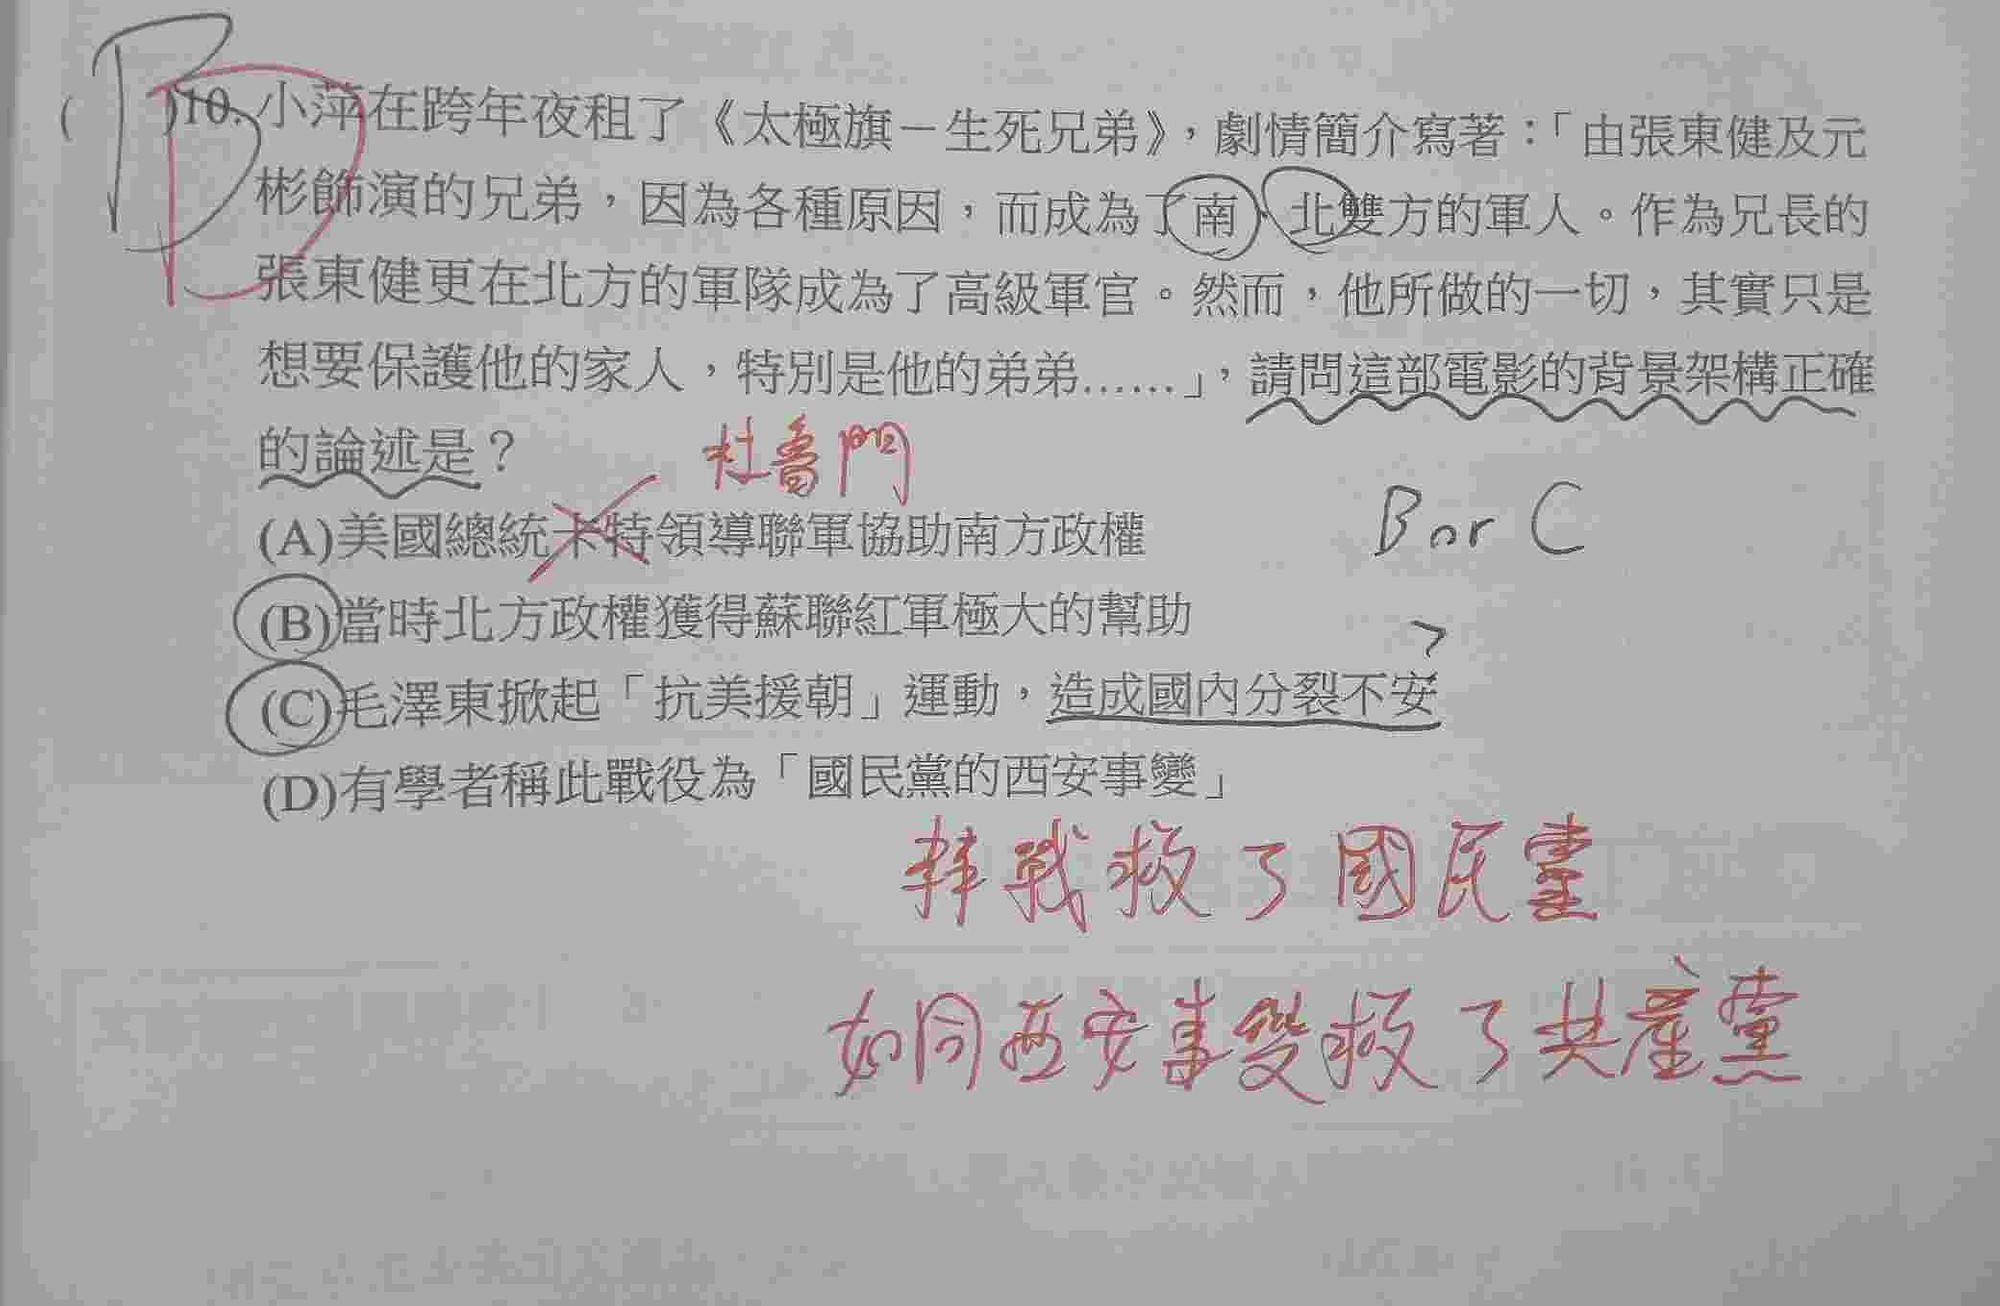 B
D
( )10. 小萍在跨年夜租了《太極旗－生死兄弟》，劇情簡介寫著：「由張東健及元
彬飾演的兄弟，因為各種原因，而成為了南、北雙方的軍人。作為兄長的
張東健更在北方的軍隊成為了高級軍官。然而，他所做的一切，其實只是
想要保護他的家人，特別是他的弟弟……」，請問這部電影的背景架構正確
的論述是？
杜魯門
(A)美國總統卡特領導聯軍協助南方政權
B or C
(B)當時北方政權獲得蘇聯紅軍極大的幫助
?
(C)毛澤東掀起「抗美援朝」運動，造成國內分裂不安
(D)有學者稱此戰役為「國民黨的西安事變」
韓戰救了國民黨
如同西安事變救了共產黨